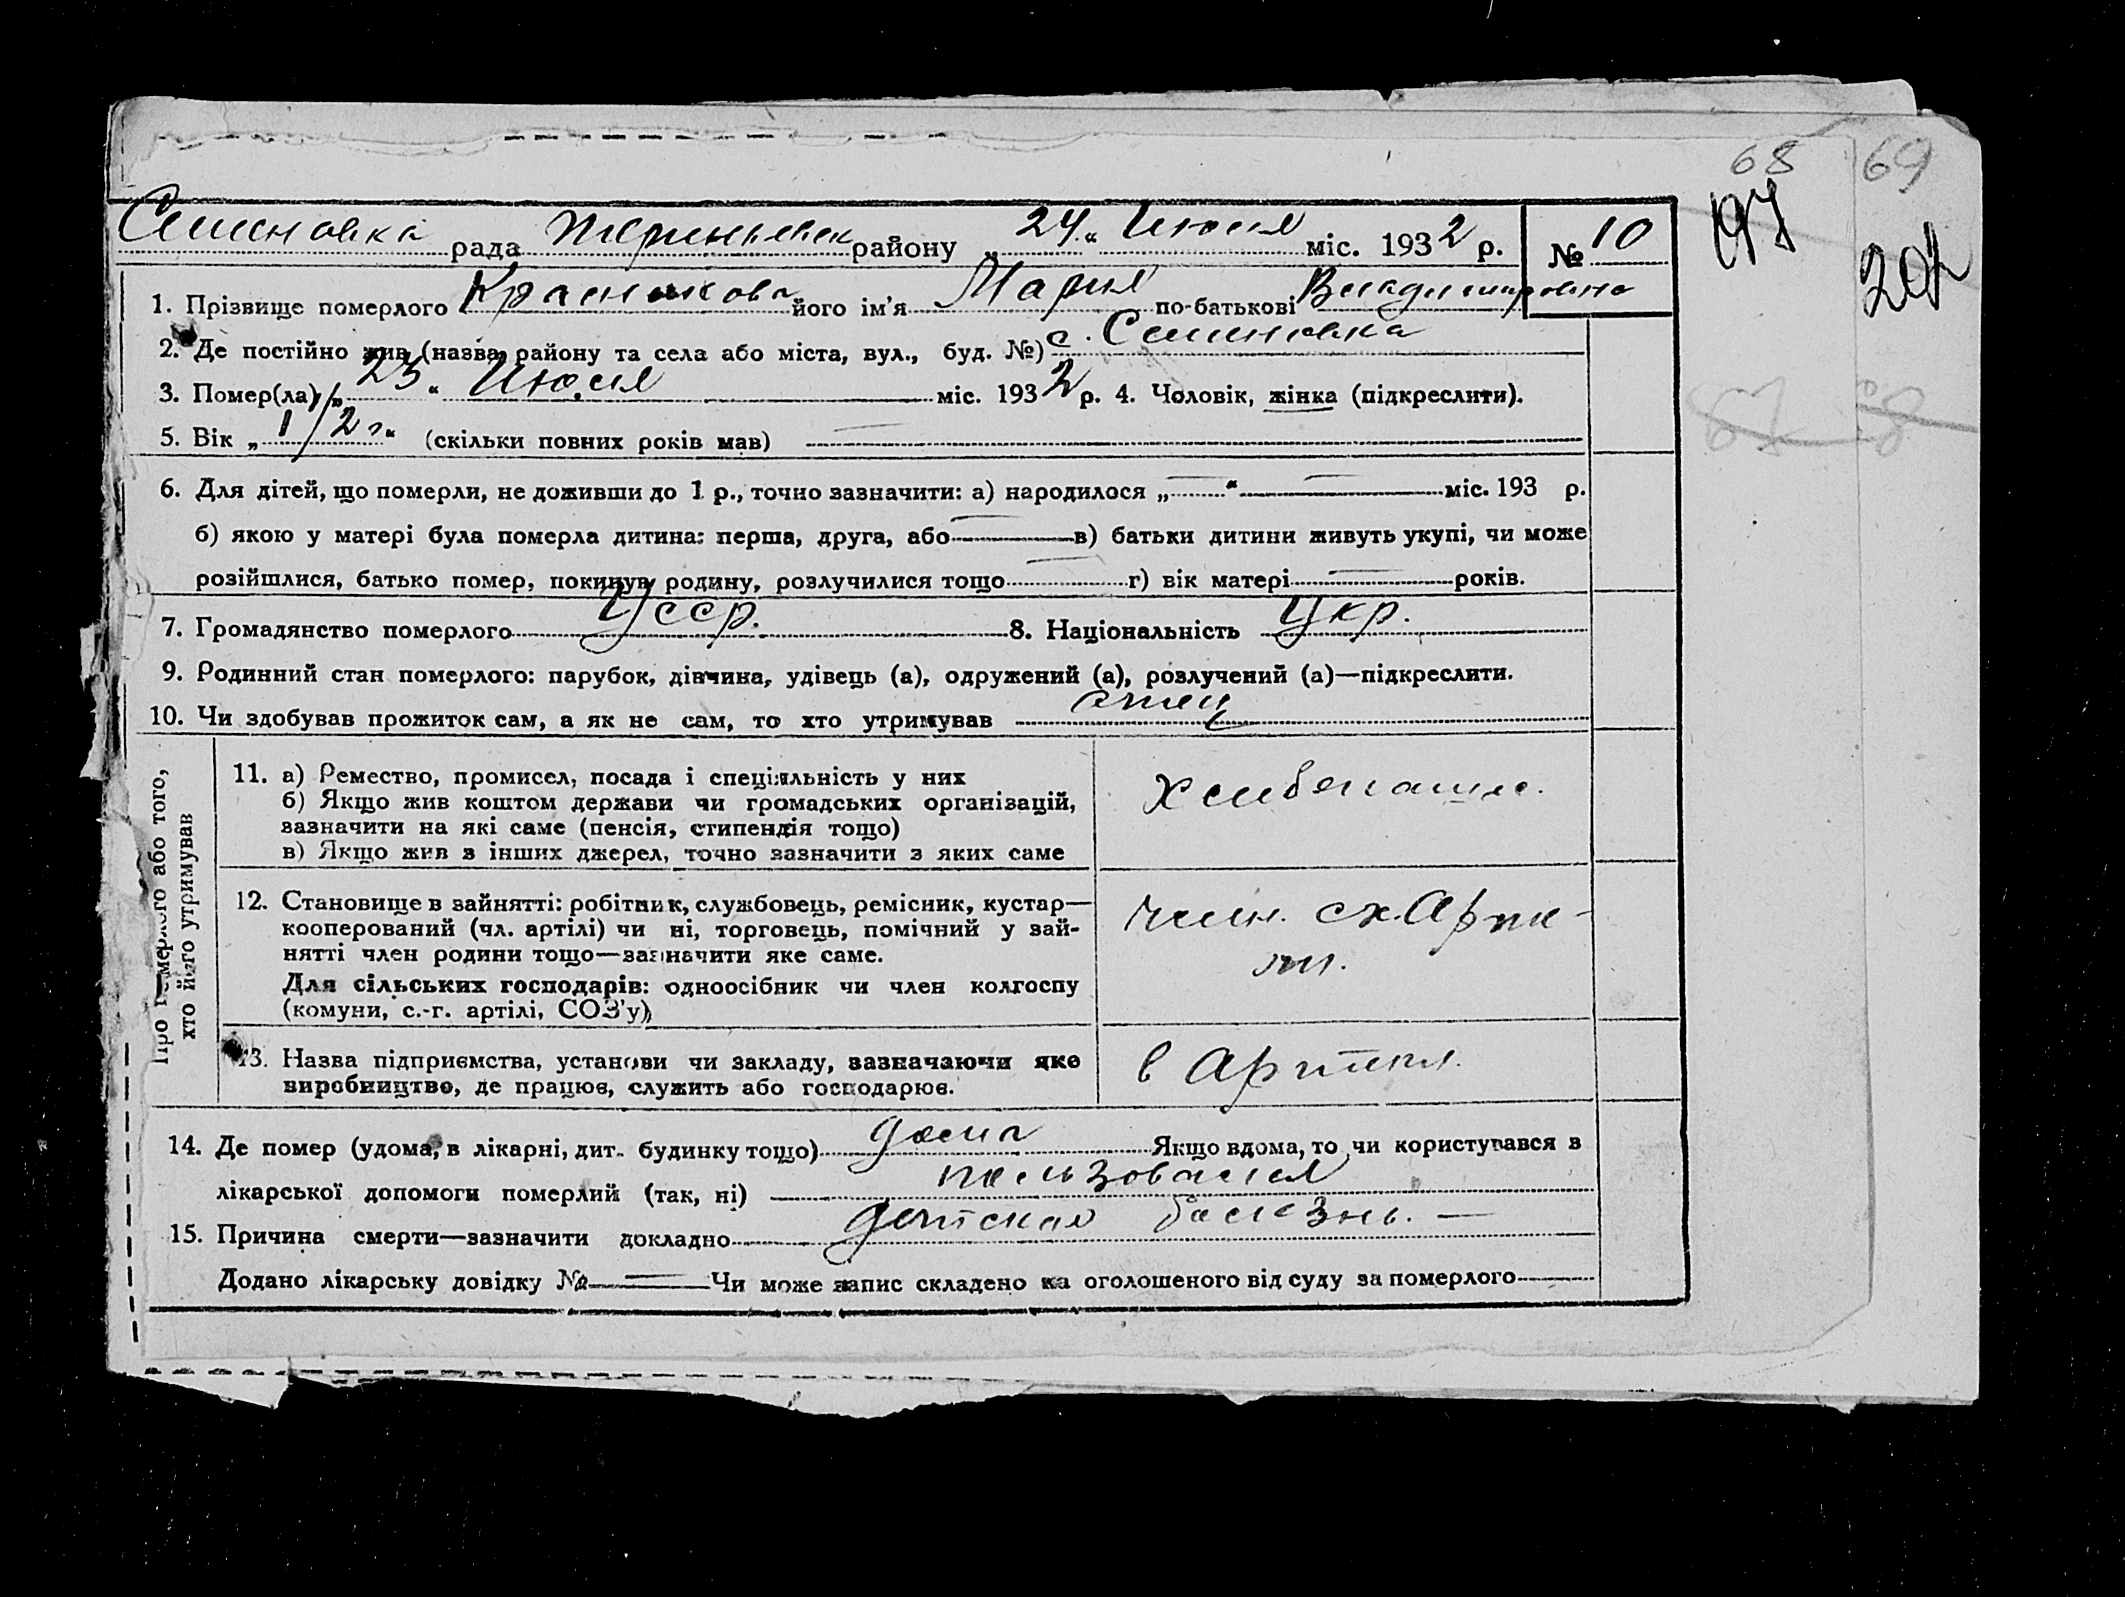 68 69
Семеновка рада района „24“ Июля міс. 1932 р. № 10
197 202
1. Прізвище померлого його ім'я Мария по-батькові Владимировна
2. Де постійно жив (назва району та села або міста, вул., буд. №) с. Семеновка
3. Помер(ла) „23“ Июля міс. 1932 р. 4. Чоловік, жінка (підкреслити).
5. Вік „1/2 г.“ (скільки повних років мав) —
6. Для дітей, що померли, не доживши до 1 р., точно зазначити: а) народилося „—“ — міс. 193 р.
б) якою у матері була померла дитина: перша, друга, або — в) батьки дитини живуть укупі, чи може
розійшлися, батько помер, покинув родину, розлучилися тощо — г) вік матері — років.
7. Громадянство померлого Усср. 8. Національність Укр.
9. Родинний стан померлого: парубок, дівчина, удівець (а), одружений (а), розлучений (а)—підкреслити.
10. Чи здобував прожиток сам, а як не сам, то хто утримував отец
Про померлого або того,
хто його утримував
11. а) Ремество, промисел, посада і спеціяльність у них
б) Якщо жив коштом держави чи громадських організацій,
зазначити на які саме (пенсія, стипендія тощо)
в) Якщо жив з інших джерел, точно зазначити з яких саме
хлебопаш.
12. Становище в зайнятті: робітник, службовець, ремісник, кустар—
кооперований (чл. артілі) чи ні, торговець, помічний у зай-
нятті член родини тощо—зазначити яке саме.
Для сільських господарів: одноосібник чи член колгоспу
(комуни, с.-г. артілі, СОЗ'у)
член. сх. Арте-
ли.
13. Назва підприємства, установи чи закладу, зазначаючи яке
виробництво, де працює, служить або господарює.
в Артели.
14. Де помер (удома, в лікарні, дит. будинку тощо) дома Якщо вдома, то чи користувався в
лікарської допомоги померлий (так, ні) пользовался
15. Причина смерти—зазначити докладно детская болезнь. —
Додано лікарську довідку № — Чи може запис складено на оголошеного від суду за померлого